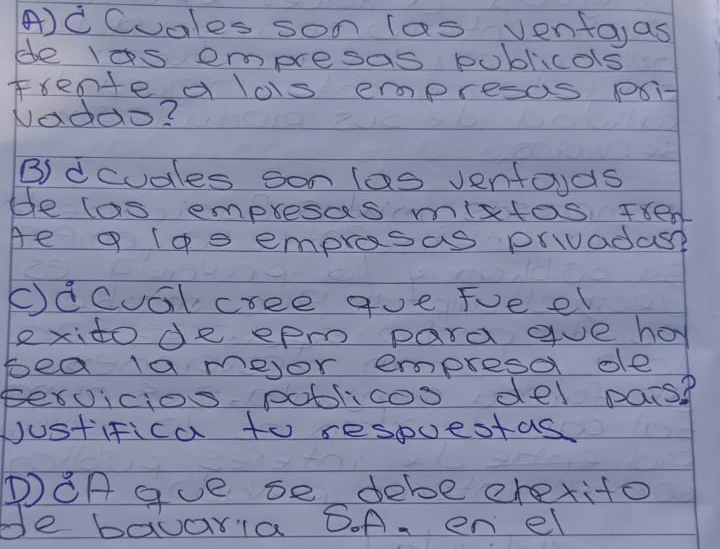 A) ¿Cuales son las ventajas
de las empresas publicas
Frente a las empresas pri-
vadas?
B) ¿cuales son las ventajas
de las empresas mixtas Fren
te a las emprasas privadas?
C) ¿Cuál cree que Fue el
exito de epm para que hoy
sea la mejor empresa de
servicios publicos del país?
Justifica tu respuestas
D) ¿A que se debe elexito
de bavaria S.A. en el